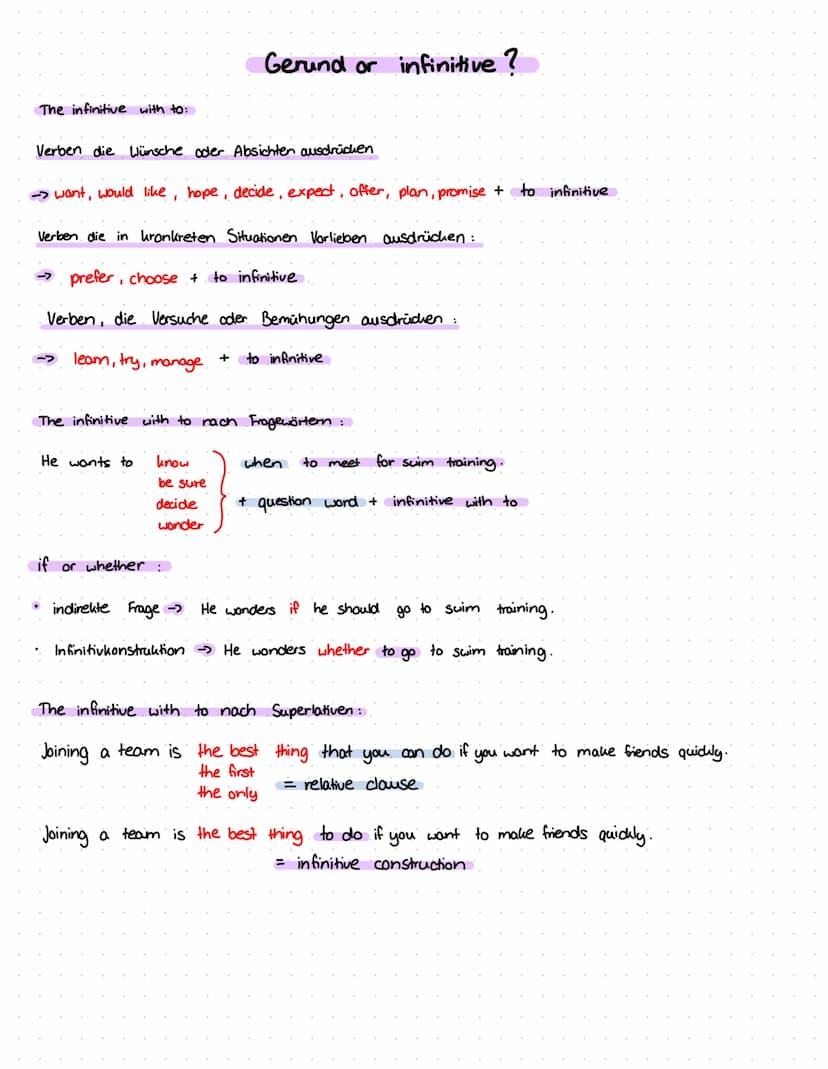 Gerund or infinitive?
The infinitive with to:
Verben die Wünsche oder Absichten ausdrücken
-> want, would like, hope, decide, expect, offer, plan, promise + to infinitive
Verben die in kronkreten Situationen Vorlieben ausdrücken:
-> prefer, choose + to infinitive
Verben, die Versuche oder Bemühungen ausdrücken:
-> learn, try, manage + to infinitive
The infinitive with to nach Fragewörtern:
He wants to know when to meet for swim training.
be sure
decide + question word + infinitive with to
wonder
if or whether:
• indirekte Frage -> He wonders if he should go to swim training.
· Infinitivkonstruktion -> He wonders whether to go to swim training.
The infinitive with to nach Superlativen:
Joining a team is the best thing that you can do if you want to make friends quickly.
the first
the only = relative clause
Joining a team is the best thing to do if you want to make friends quickly.
= infinitive construction